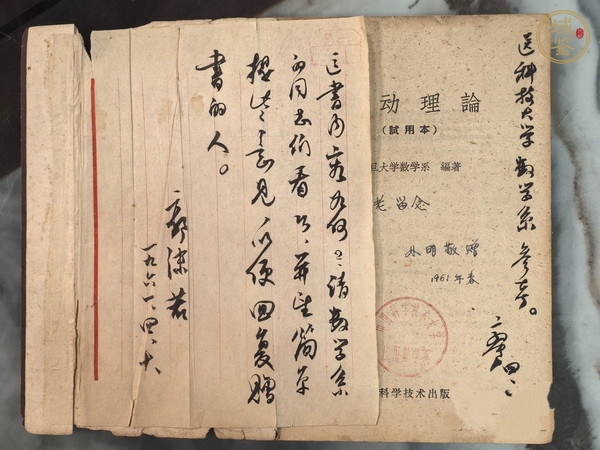 送科技大学数学系参考。
动理論
(試用本)
旦大学数学系 編著
老 留念
明敬赠
1961年春
科学技术出版
这書内容如何？请数学系
的同志们看看、并望简单
提些意见，以便回复赠
書的人。
郭沫若
一九六一、四、十